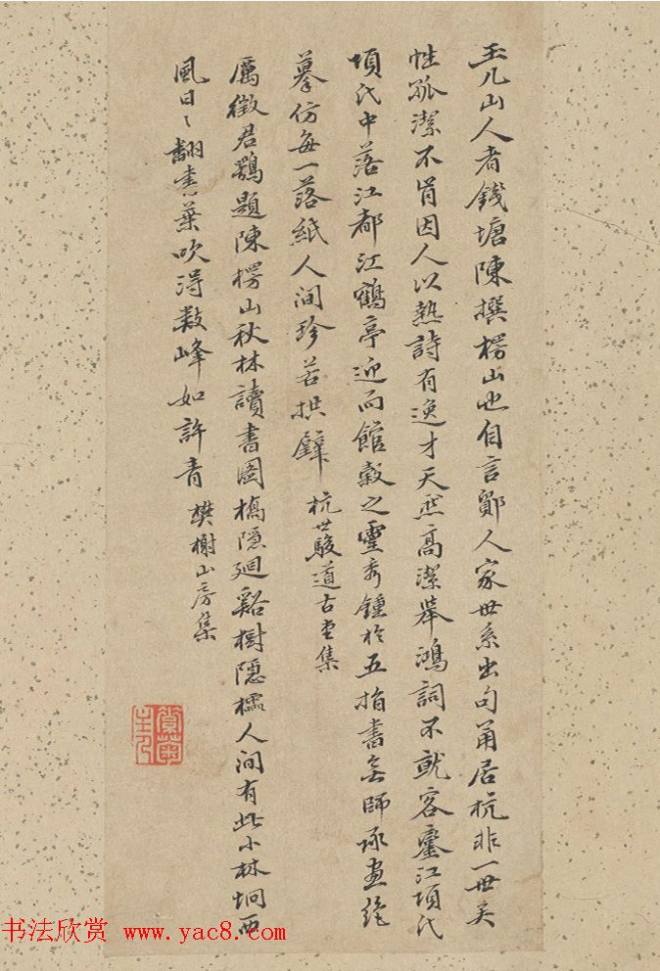 玉几山人者錢塘陳撰楞山也自言鄞人家世系出句甬居杭非一世矣
性孤潔不肯因人以熱詩有逸才天然高潔舉鴻詞不就客鑾江項氏
項氏中落江都江鶴亭迎而館穀之靈秀鍾於五指書無師承畫絕
摹仿每一落紙人间珍若拱璧 杭世駿道古堂集
厲徵君鶚題陳楞山秋林讀書圖橋隱廻谿樹隱櫺人间有此小林坰西
風日〻翻書葉吹得數峰如許青 樊榭山房集
书法欣赏 www.yac8.com